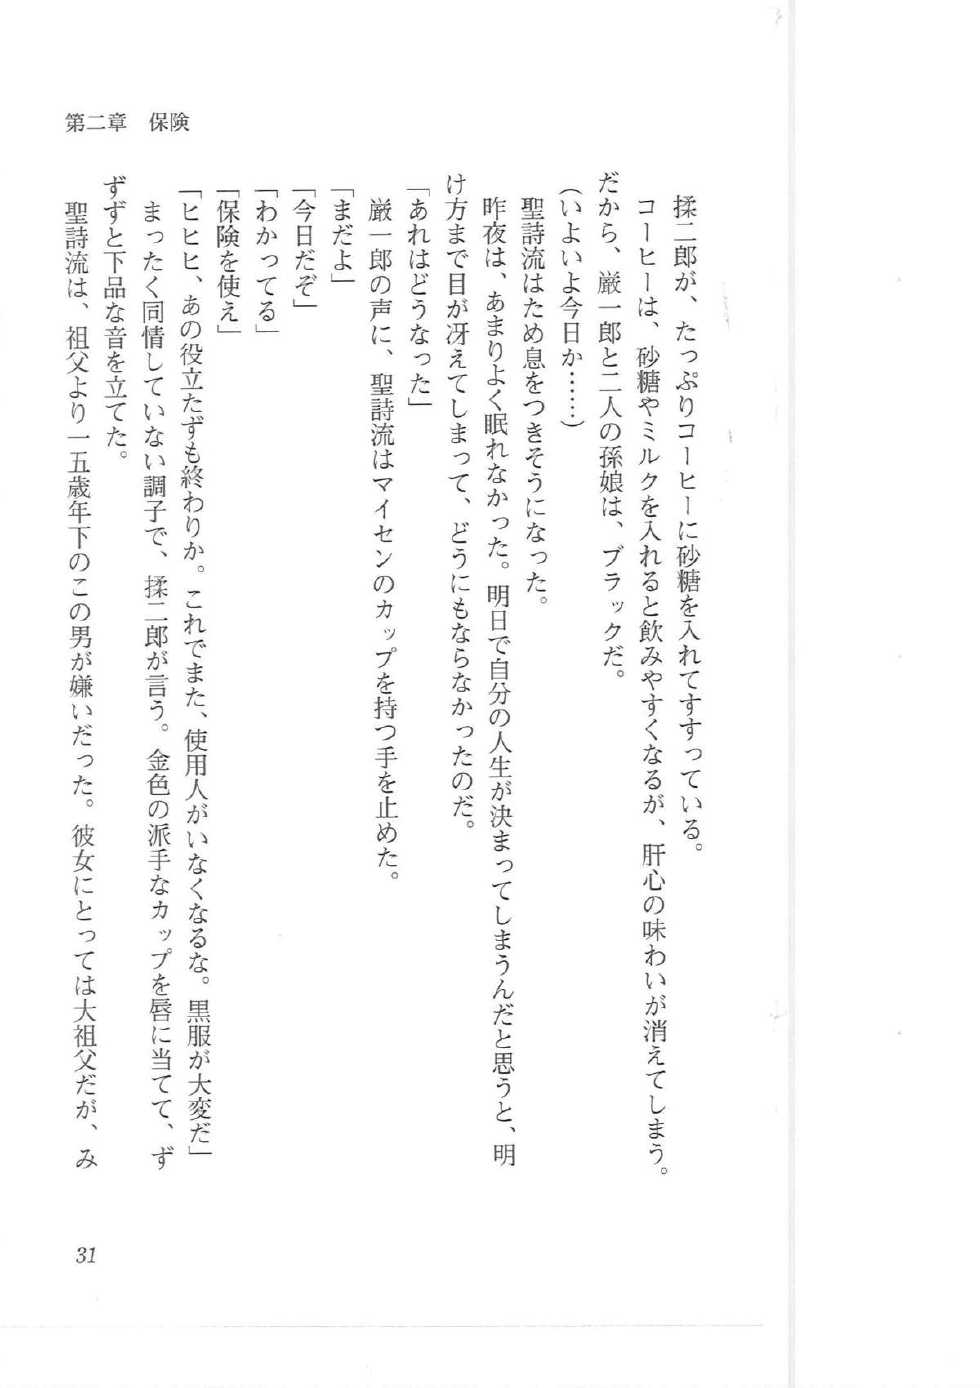 第二章　保険
揉二郎が、たっぷりコーヒーに砂糖を入れてすすっている。
コーヒーは、砂糖やミルクを入れると飲みやすくなるが、肝心の味わいが消えてしまう。
だから、厳一郎と二人の孫娘は、ブラックだ。
（いよいよ今日か……）
聖詩流はため息をつきそうになった。
昨夜は、あまりよく眠れなかった。明日で自分の人生が決まってしまうんだと思うと、明
け方まで目が冴えてしまって、どうにもならなかったのだ。
「あれはどうなった」
厳一郎の声に、聖詩流はマイセンのカップを持つ手を止めた。
「まだよ」
「今日だぞ」
「わかってる」
「保険を使え」
「ヒヒヒ、あの役立たずも終わりか。これでまた、使用人がいなくなるな。黒服が大変だ」
まったく同情していない調子で、揉二郎が言う。金色の派手なカップを唇に当てて、ず
ずずと下品な音を立てた。
聖詩流は、祖父より一五歳年下のこの男が嫌いだった。彼女にとっては大祖父だが、み
31